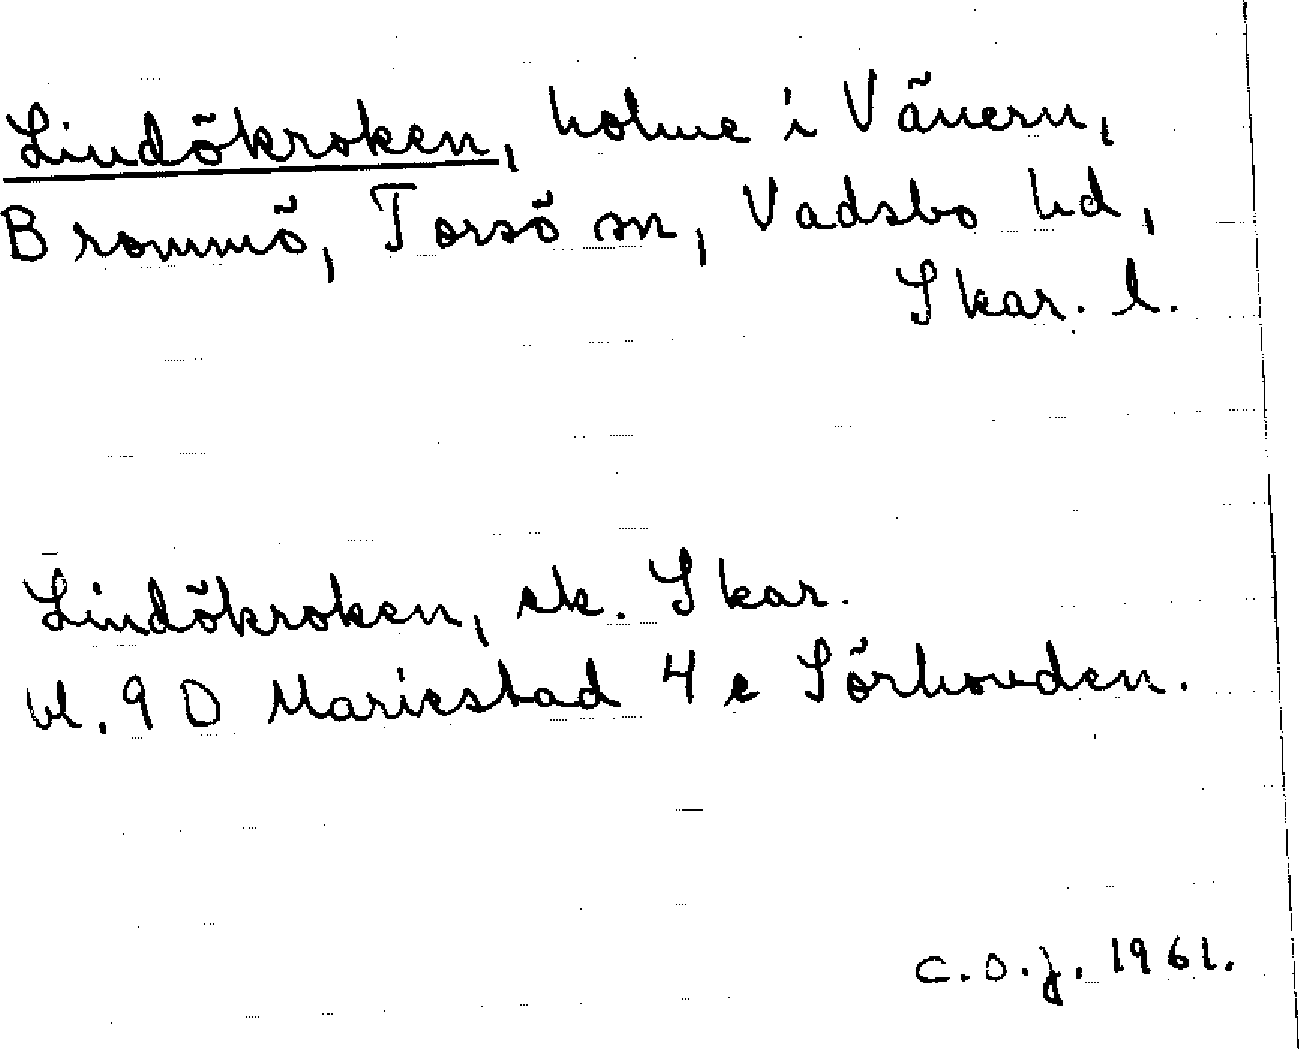 Lindökroken, holme i Vänern,
Brommö, Torsö sn, Vadsbo hd,
Skar. l.
Lindökroken, ek. Skar.
bl. 9 D Mariestad 4 e Sörhovden.
C.O.J. 1961.